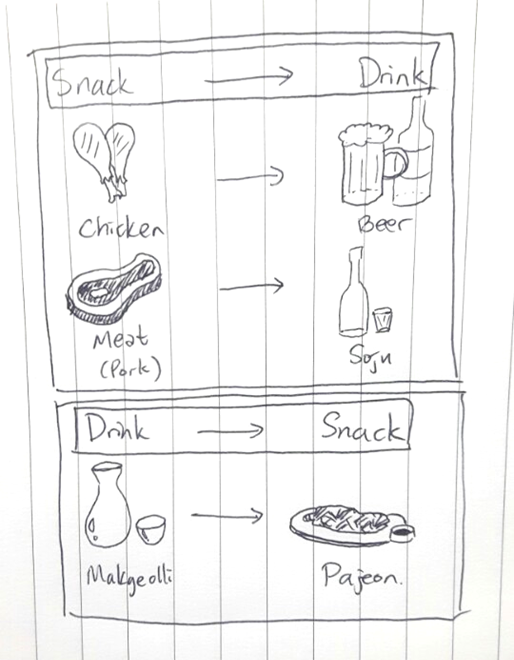 Snack → Drink
Chicken → Beer
Meat → Soju
(Pork)
Drink → Snack
Makgeolli → Pajeon.